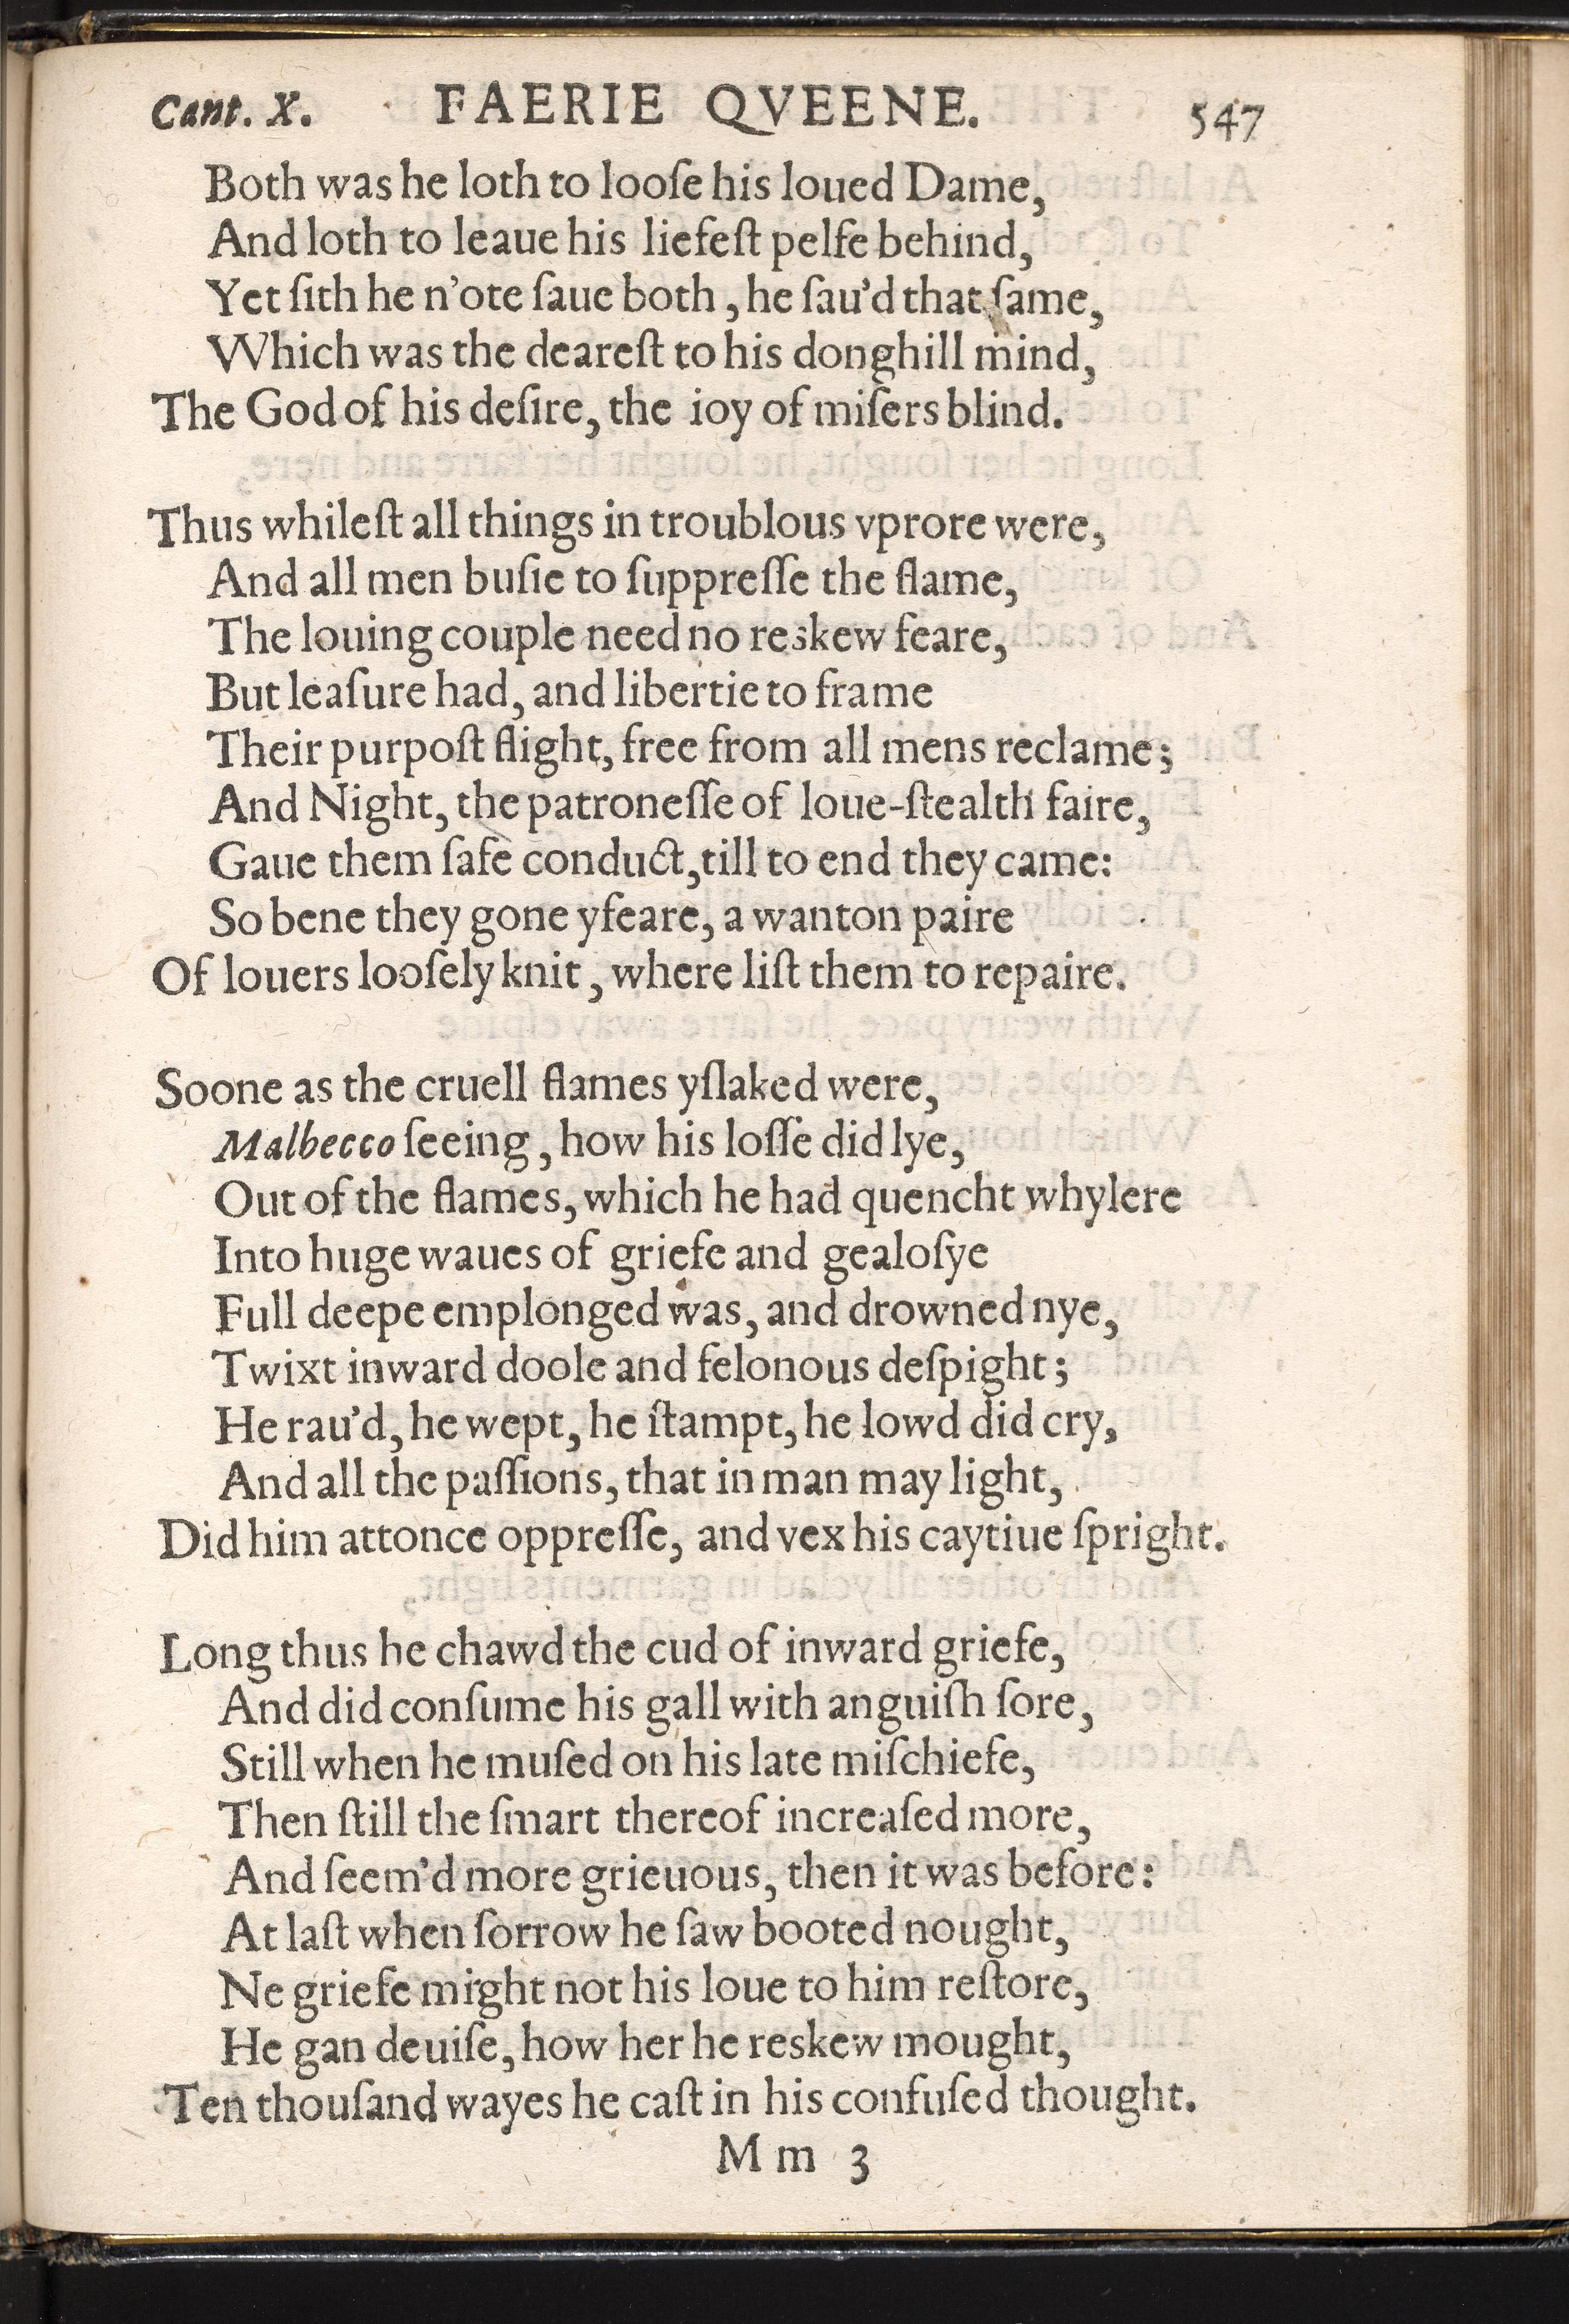 Cant. X. FAERIE QVEENE. 547
Both was he loth to looſe his loued Dame,
And loth to leaue his liefeſt pelfe behind,
Yet ſith he n'ote ſaue both, he ſau'd that ſame,
Which was the deareſt to his donghill mind,
The God of his deſire, the ioy of miſers blind.
Thus whileſt all things in troublous vprore were,
And all men buſie to ſuppreſſe the flame,
The louing couple need no reskew feare,
But leaſure had, and libertie to frame
Their purpoſt flight, free from all mens reclame;
And Night, the patroneſſe of loue-ſtealth faire,
Gaue them ſafe conduct, till to end they came:
So bene they gone yfeare, a wanton paire
Of louers looſely knit, where liſt them to repaire.
Soone as the cruell flames yſlaked were,
Malbecco ſeeing, how his loſſe did lye,
Out of the flames, which he had quencht whylere
Into huge waues of griefe and gealoſye
Full deepe emplonged was, and drowned nye,
Twixt inward doole and felonous deſpight;
He rau'd, he wept, he ſtampt, he lowd did cry,
And all the paſſions, that in man may light,
Did him attonce oppreſſe, and vex his caytiue ſpright.
Long thus he chawd the cud of inward griefe,
And did conſume his gall with anguiſh ſore,
Still when he muſed on his late miſchiefe,
Then ſtill the ſmart thereof increaſed more,
And ſeem'd more grieuous, then it was before:
At laſt when ſorrow he ſaw booted nought,
Ne griefe might not his loue to him reſtore,
He gan deuiſe, how her he reskew mought,
Ten thouſand wayes he caſt in his confuſed thought.
M m 3